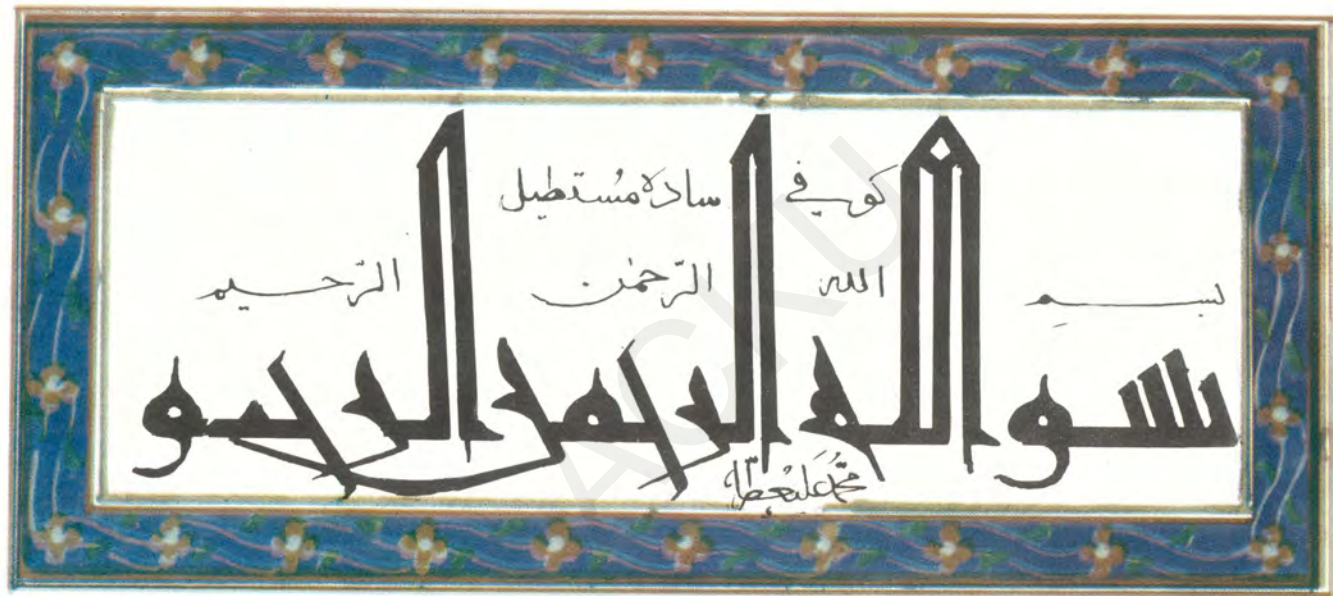 كوفي ساده مُستطیل
بسمِ الله الرّحمٰن الرّحیم
بسم الله الرحمن الرحيم
محمد علی عطار
ACKU